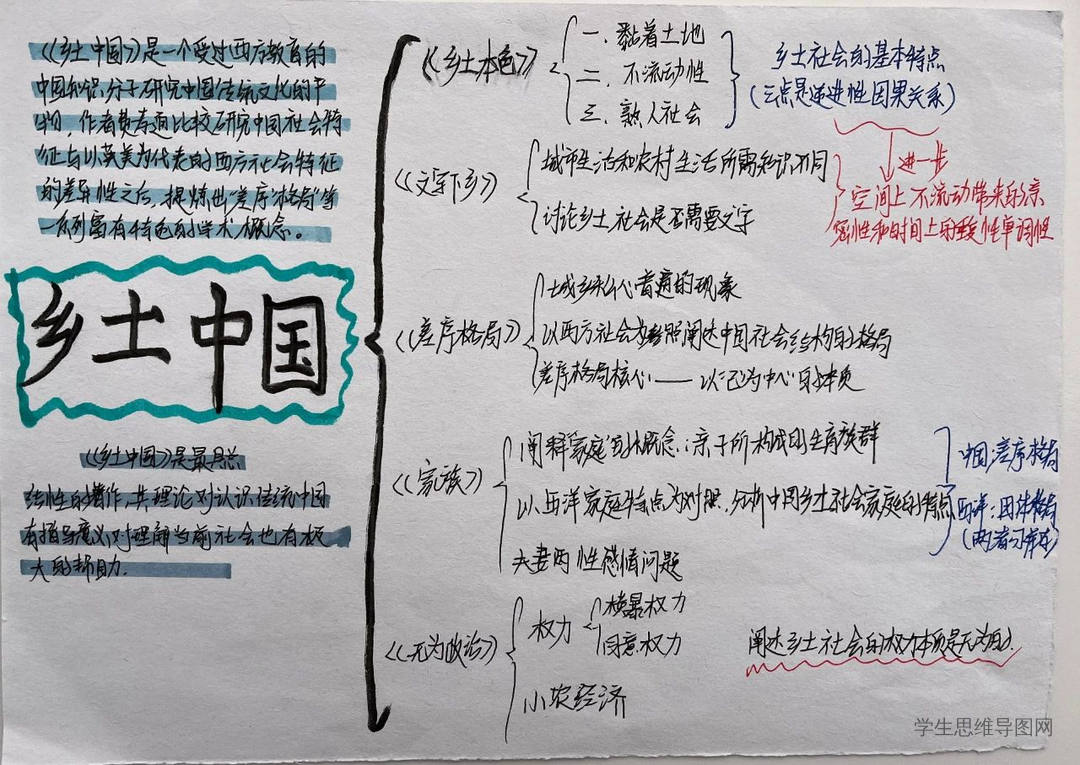 《乡土中国》是一个受过西方教育的
中国知识分子研究中国传统文化的产
物，作者费孝通比较研究中国社会特
征与以英美为代表的西方社会特征
的差异性之后，提炼出“差序格局”等
一系列富有特色的学术概念。
乡土中国
《乡土中国》是最具总
结性的著作，其理论对认识传统中国
有指导意义，对理解当前社会也有极
大的帮助.
《乡土本色》
一、黏着土地
二、不流动性
三、熟人社会
乡土社会的基本特点
(三点是递进性因果关系)
《文字下乡》
城市生活和农村生活所需知识不同
讨论乡土社会是否需要文字
进一步
空间上不流动带来的亲
密性和时间上的致性单调性
《差序格局》
城乡私心普遍的现象
以西方社会为参照阐达中国社会结构的格局
差序格局核心——以己为中心的本质
《家族》
阐释“家庭”的概念：亲子所构成的生育族群
以西洋家庭特点为对照，分析中国乡土社会家庭的特点
夫妻两性感情问题
中国：差序格局
西洋：团体格局
《无为政治》
权力
横暴权力
同意权力
小农经济
阐达乡土社会的权力本质是无为的.
学生思维导图网